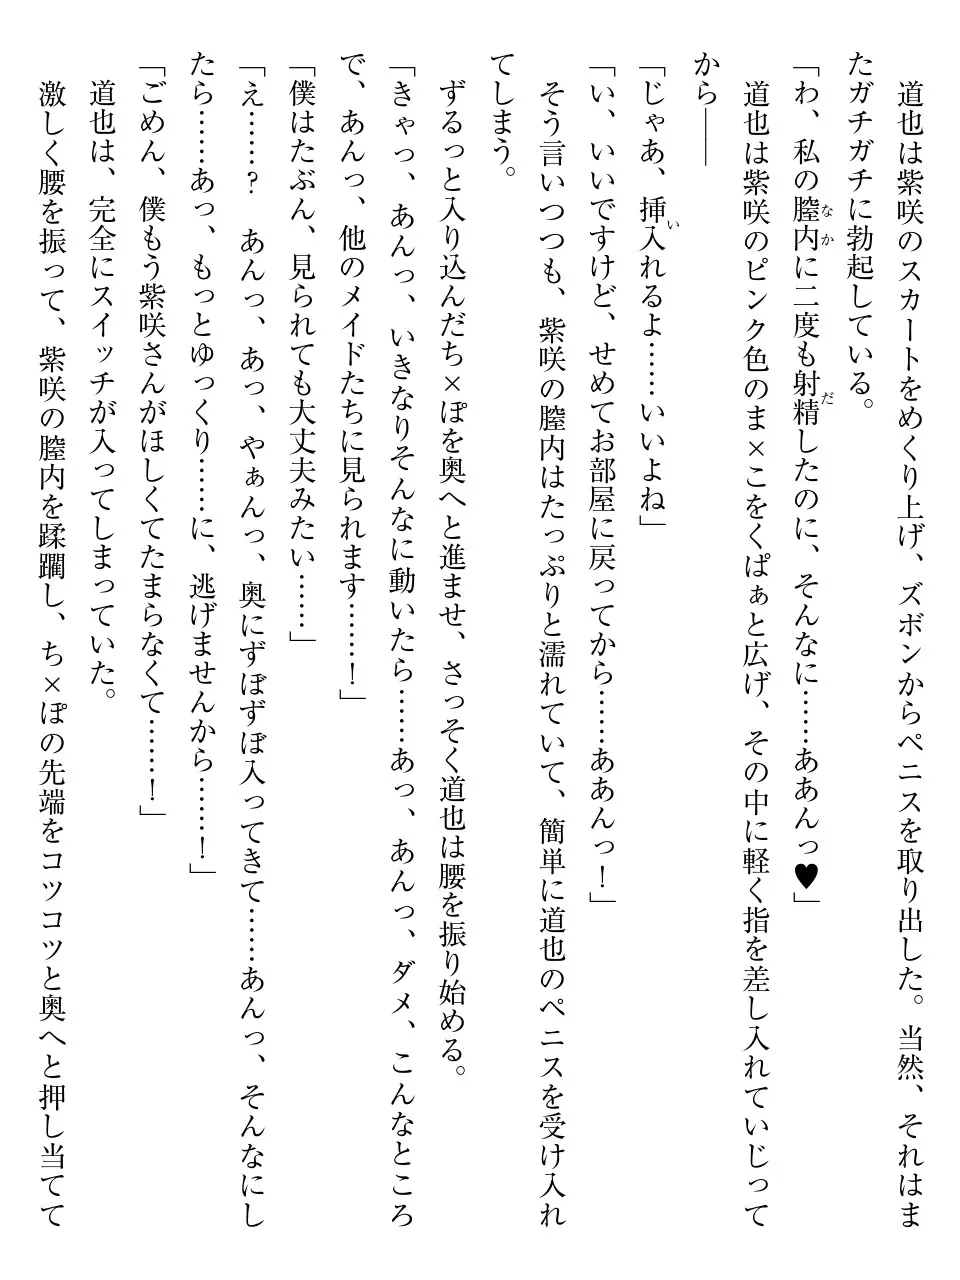 道也は紫咲のスカートをめくり上げ、ズボンからペニスを取り出した。当然、それはま
たガチガチに勃起している。
なか　だ
「わ、私の膣内に二度も射精したのに、そんなに……ああんっ♥」
　道也は紫咲のピンク色のま×こをくぱぁと広げ、その中に軽く指を差し入れていじって
から――
い
「じゃあ、挿入れるよ……いいよね」
「い、いいですけど、せめてお部屋に戻ってから……ああんっ！」
　そう言いつつも、紫咲の膣内はたっぷりと濡れていて、簡単に道也のペニスを受け入れ
てしまう。
　ずるっと入り込んだち×ぽを奥へと進ませ、さっそく道也は腰を振り始める。
「きゃっ、あんっ、いきなりそんなに動いたら……あっ、あんっ、ダメ、こんなところ
で、あんっ、他のメイドたちに見られます……！」
「僕はたぶん、見られても大丈夫みたい……」
「え……？　あんっ、あっ、やぁんっ、奥にずぼずぼ入ってきて……あんっ、そんなにし
たら……あっ、もっとゆっくり……に、逃げませんから……！」
「ごめん、僕もう紫咲さんがほしくてたまらなくて……！」
　道也は、完全にスイッチが入ってしまっていた。
　激しく腰を振って、紫咲の膣内を蹂躙し、ち×ぽの先端をコツコツと奥へと押し当てて